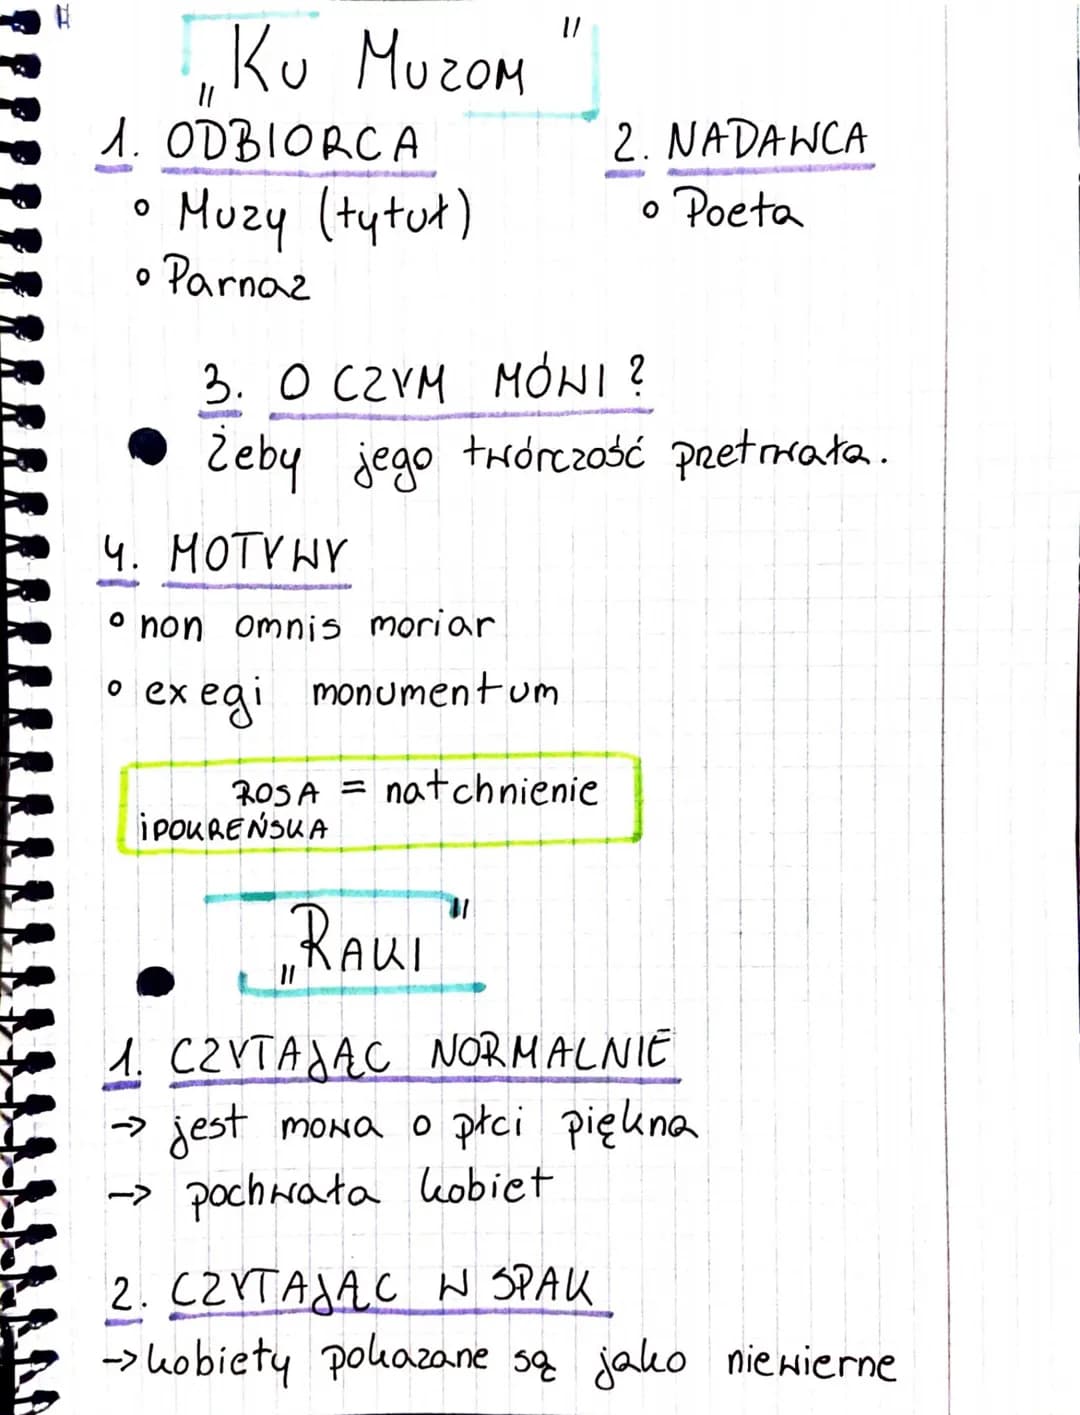 „Ku Muzom"
1. ODBIORCA
◦ Muzy (tytuł)
◦ Parnaz
2. NADAWCA
◦ Poeta
3. O CZYM MÓWI?
● żeby jego twórczość pretrwała.
4. MOTYWY
◦ non omnis moriar
◦ exegi monumentum
ROSA = natchnienie
iPOKREŃSKA
● „RAKI"
1. CZYTAJĄC NORMALNIE
→ jest mowa o płci piękna
→ pochwała kobiet
2. CZYTAJĄC W SPAK
→ kobiety pokazane są jako niewierne